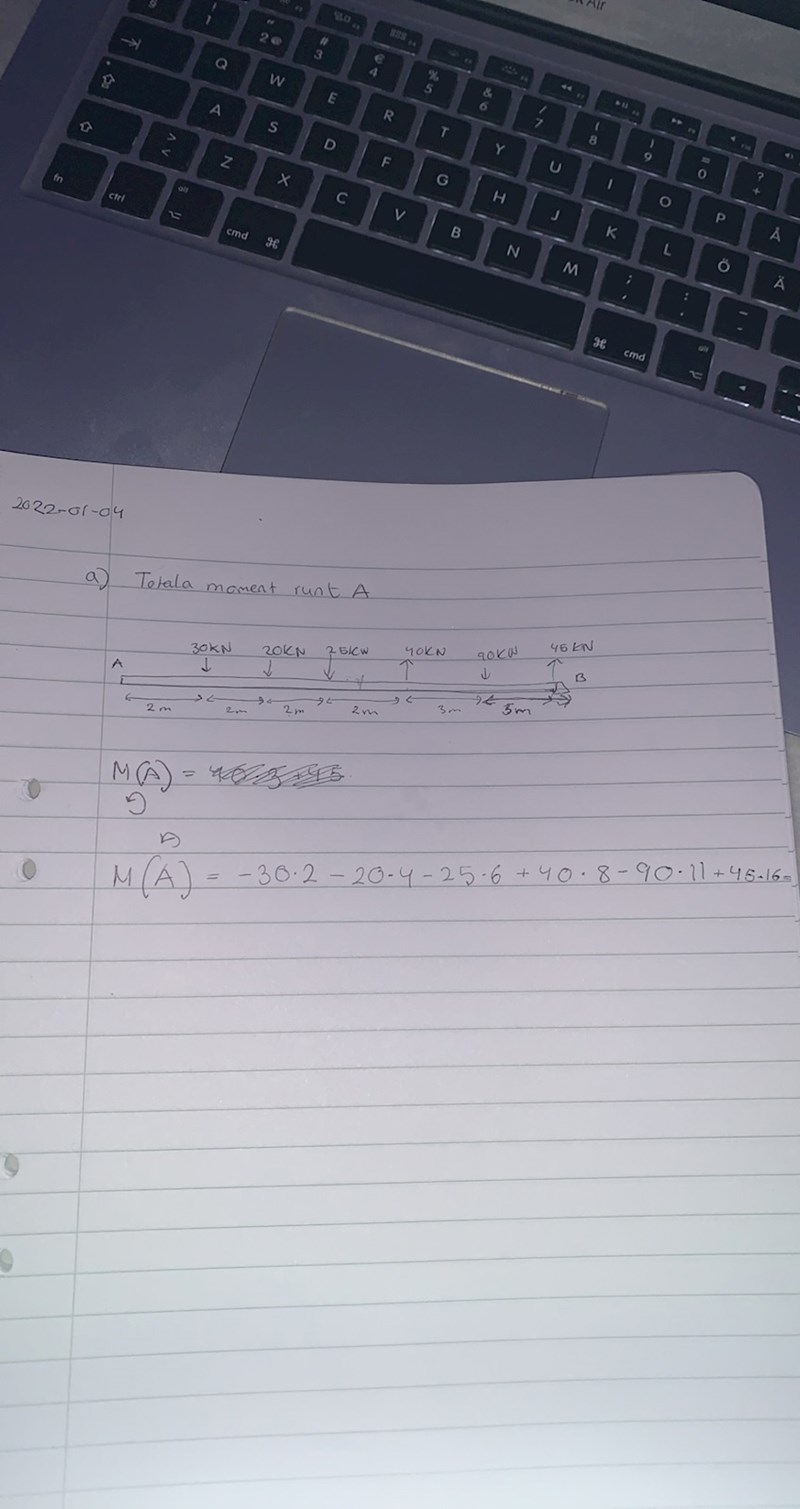 k Air
! 1
" 2 @
# 3
€ 4
% 5
& 6
/ 7
( 8
) 9
= 0
? +
Q W E R T Y U I O P Å
A S D F G H J K L Ö Ä
> < Z X C V B N M ; , : . _ -
fn ctrl alt cmd ⌘ ⌘ cmd alt
2022-01-04
a) Totala moment runt A
30KN 20KN 25KN 40KN 90KN 45KN
A B
2m 2m 2m 2m 3m 5m
M(A) =
M(A) = -30·2 - 20·4 - 25·6 + 40·8 - 90·11 + 45·16=